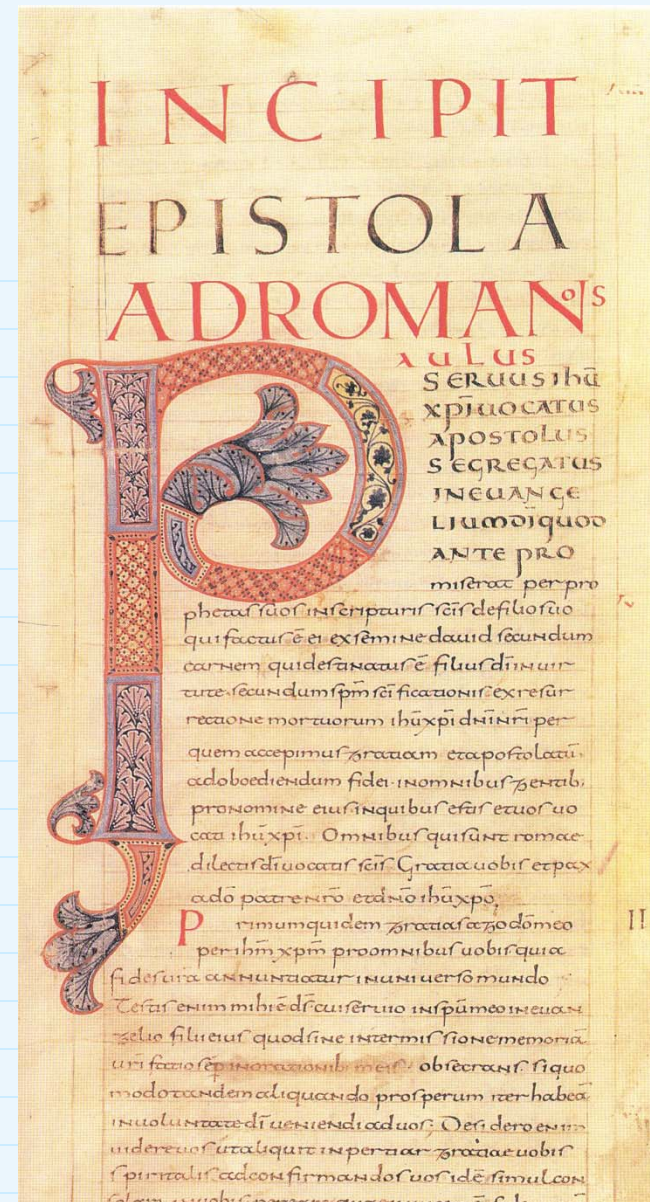 INCIPIT
EPISTOLA
AD ROMANOS
PAULUS
SERUUS ihū
xpi UOCATUS
APOSTOLUS
SEGREGATUS
IN EUANGE
LIUM dī QUOD
ANTE PRO
miserat per pro
phetas suos in scripturis scis de filio suo
qui factus ē ei ex semine dauid secundum
carnem qui destinatus ē filius dī in uir
tute secundum spm sci ficationis ex resur
rectione mortuorum ihū xpi dni nri per
quem accepimus gratiam et apostolatū
ad oboediendum fidei in omnibus gentib;
pro nomine eius in quibus estis et uos uo
cati ihū xpi. Omnibus qui sunt romae
dilectis dī uocatis scis. Gratia uobis et pax
a dō patre nrō et dnō ihū xpō,
Primum quidem gratias ago dō meo
per ihm xpm pro omnibus uobis quia
fides ura annuntiatur in uniuerso mundo
Testis enim mihi ē ds cui seruio in spū meo in euan
gelio filii eius quod sine intermissione memoriā
uri facio sep in orationib meis. obsecrans. si quo
modo tandem aliquando prosperum iter habeā
in uoluntate dī ueniendi ad uos; Desidero enim
uidere uos ut aliquit inpertiar gratiae uobis
spiritalis ad confirmandos uos id ē simul con
II